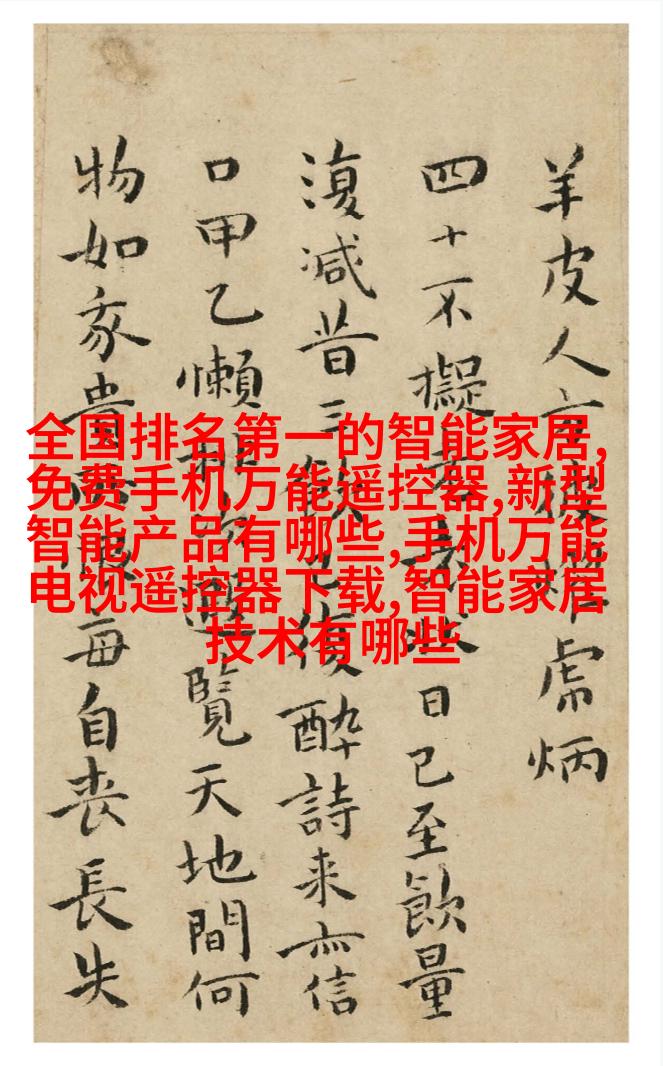 全国排名第一的智能家居,
免费手机万能遥控器,新型
智能产品有哪些,手机万能
电视遥控器下载,智能家居
技术有哪些
羊皮人炳
四十不擬日已至飲量
復减昔三醉詩来亦信
口甲乙懶覽天地間何
物如豕貴每自喪長失